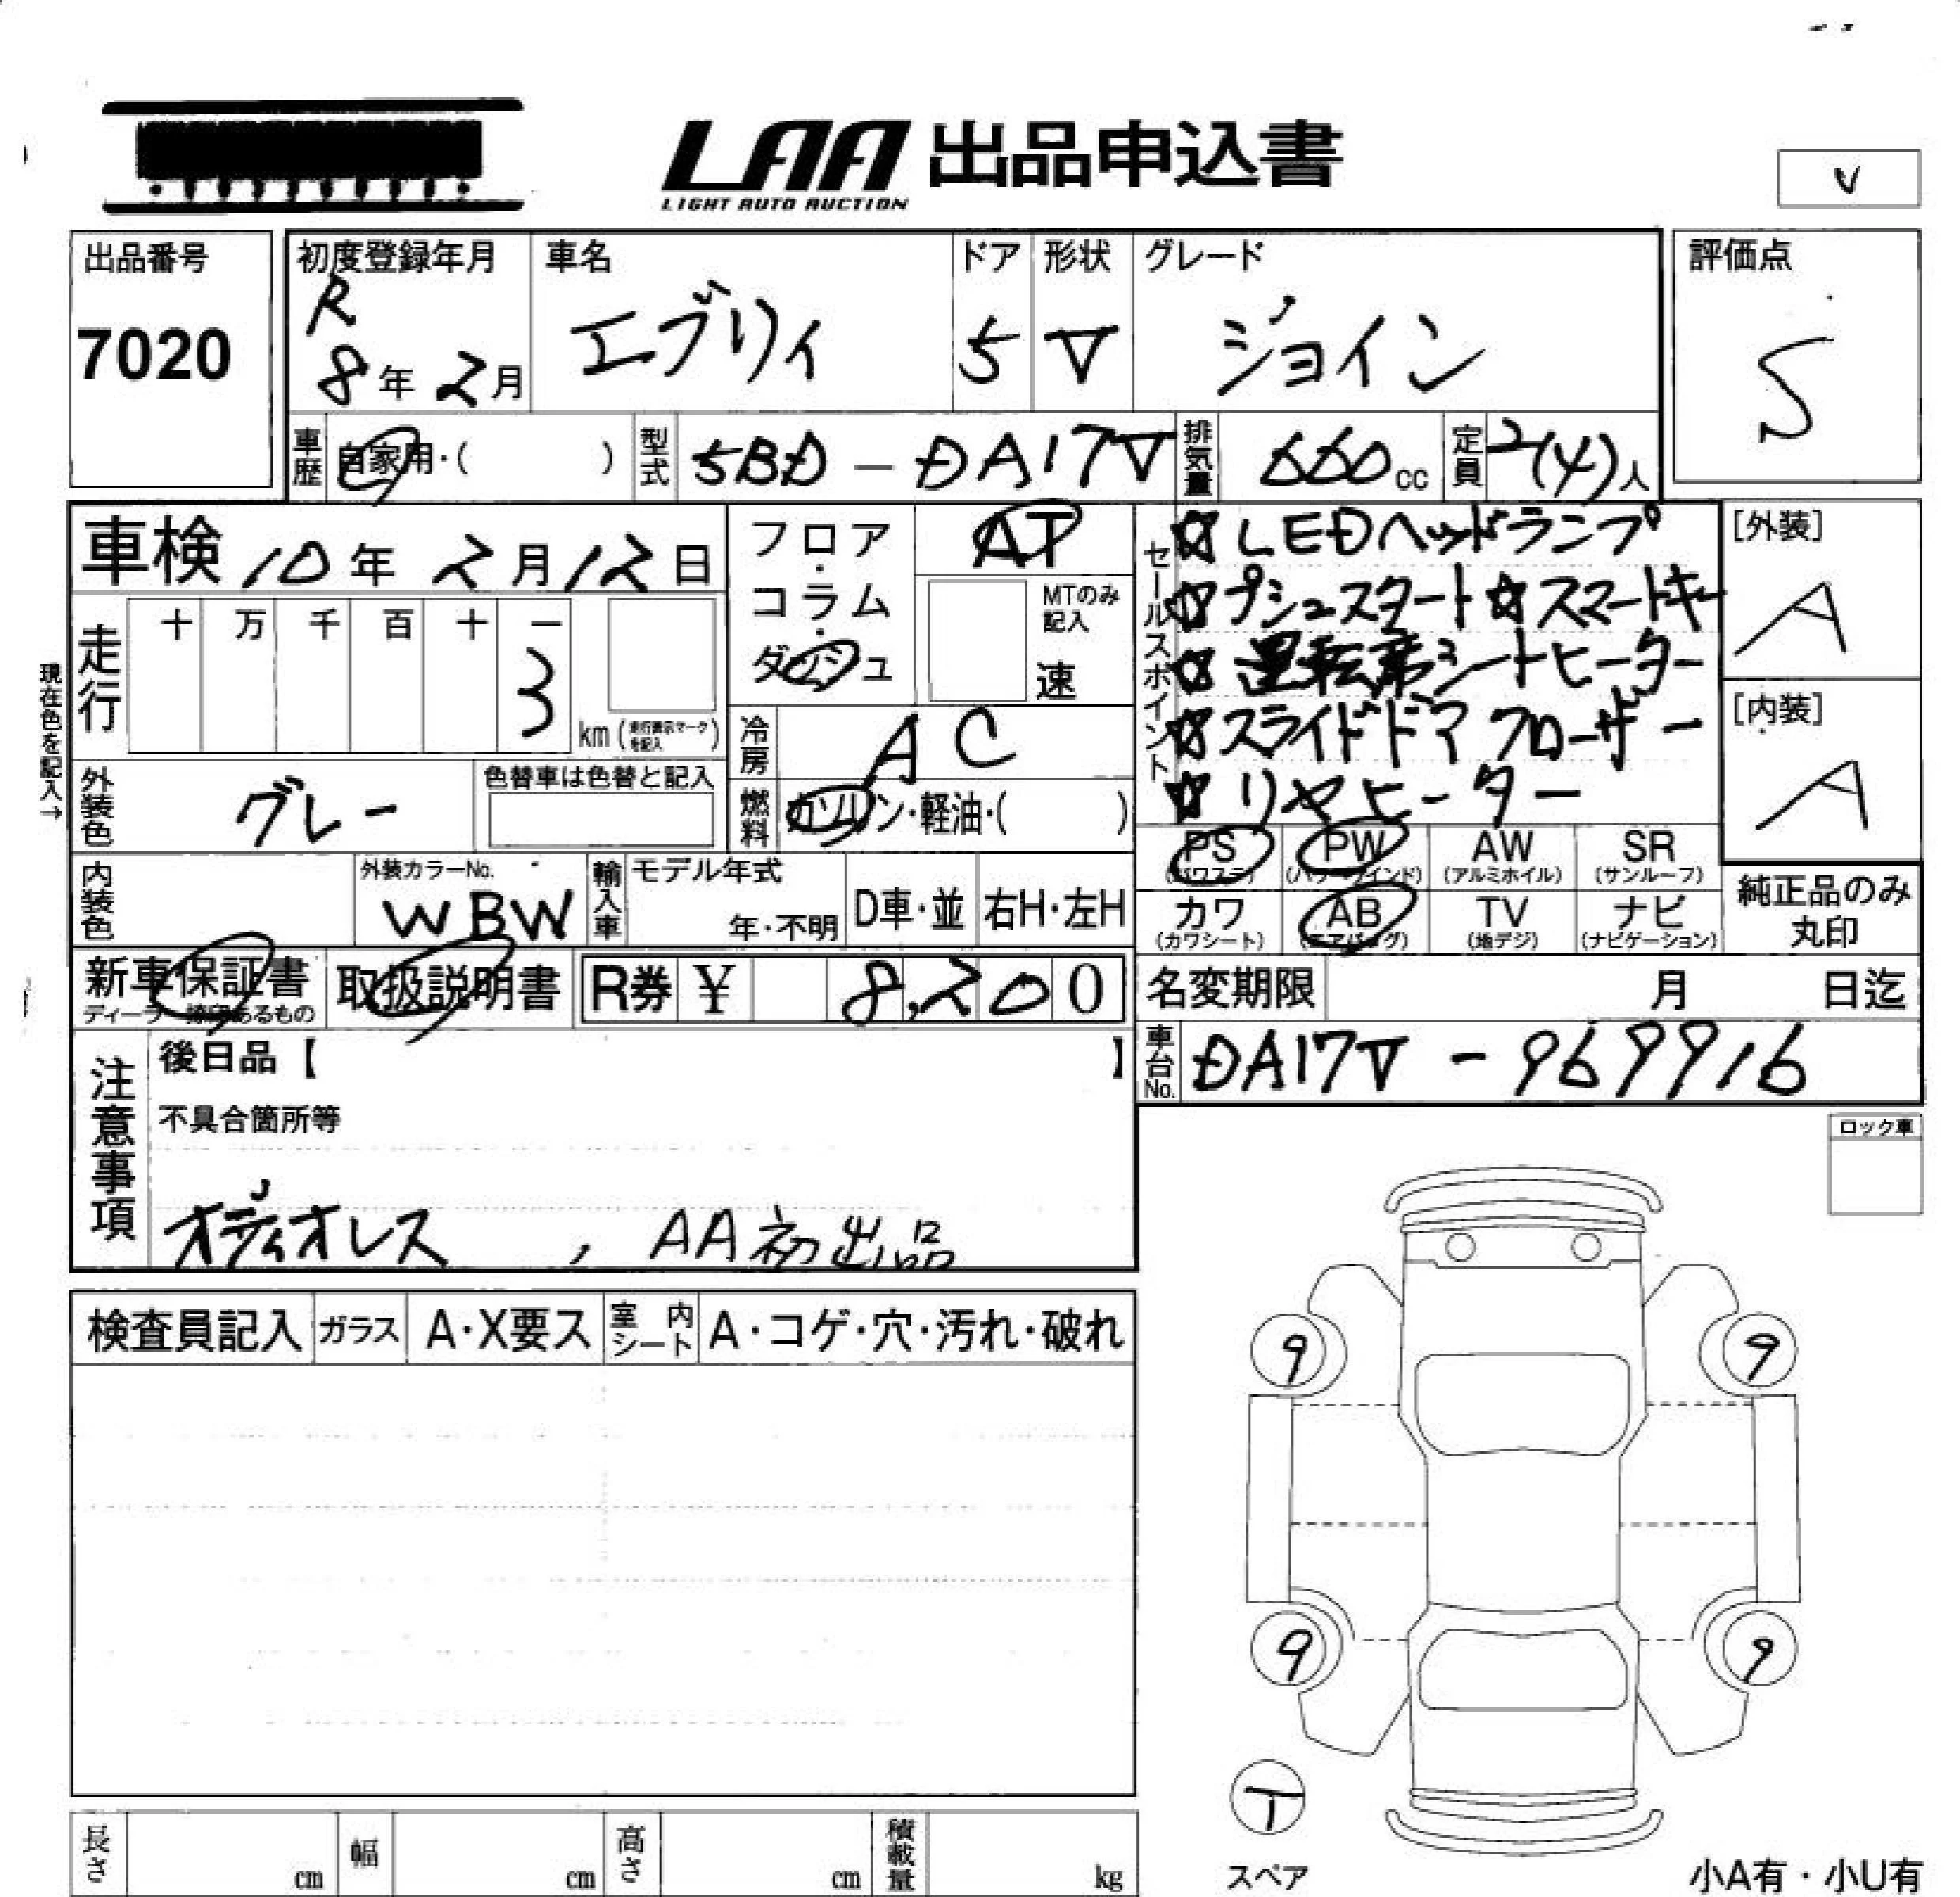 LAA 出品申込書
LIGHT AUTO AUCTION
V
出品番号
7020
初度登録年月
R
8年 2月
車名
エブリィ
ドア
5
形状
V
グレード
ジョイン
評価点
S
車歴
自家用・( )
型式
5BD - DA17V
排気量
660cc
定員
2(4)人
車検 10年 2月 12日
フロア・コラム・ダッシュ
AT
MTのみ記入
速
走行
十 万 千 百 十 一
3
km (走行表示マークを記入)
現在色を記入→
冷房
AC
外装色
グレー
色替車は色替と記入
燃料
ガソリン・軽油・( )
セールスポイント
☆LEDヘッドランプ
☆プシュスタート☆スマートキー
☆運転席シートヒーター
☆スライドドアクローザー
☆リヤヒーター
[外装]
A
[内装]
A
内装色
外装カラーNo.
WBW
輸入車
モデル年式
年・不明
D車・並
右H・左H
PS (パワステ)
PW (パワーウインド)
AW (アルミホイル)
SR (サンルーフ)
カワ (カワシート)
AB (エアバッグ)
TV (地デジ)
ナビ (ナビゲーション)
純正品のみ丸印
新車保証書
取扱説明書
R券 ¥ 8,200
名変期限 月 日迄
車台No.
DA17V - 969916
注意事項
後日品【 】
不具合箇所等
オーディオレス , AA初出品
ロック車
検査員記入
ガラス
A・X要ス
室内シート
A・コゲ・穴・汚れ・破れ
9 9
9 9
T
スペア
長さ cm
幅 cm
高さ cm
積載量 kg
小A有・小U有